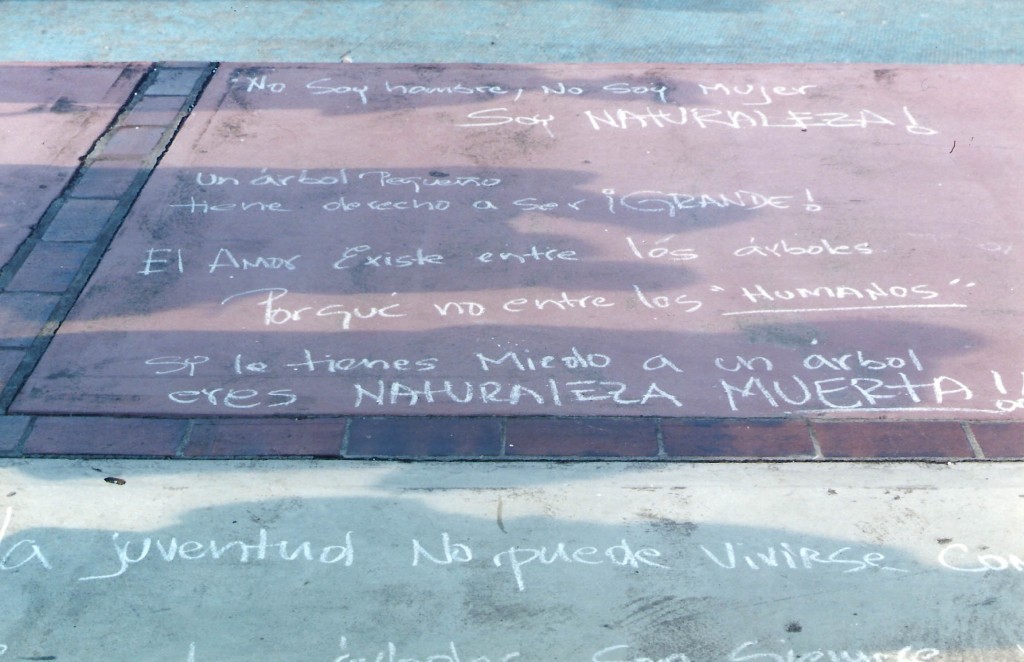 No Soy hombre, No Soy Mujer
Soy NATURALEZA!
Un árbol Pequeño
tiene derecho a ser ¡GRANDE!
El Amor Existe entre lós árboles
Porqué no entre los "HUMANOS"
Si le tienes Miedo a un árbol
eres NATURALEZA MUERTA!!
la juventud No puede Vivirse
árboles son Siempre